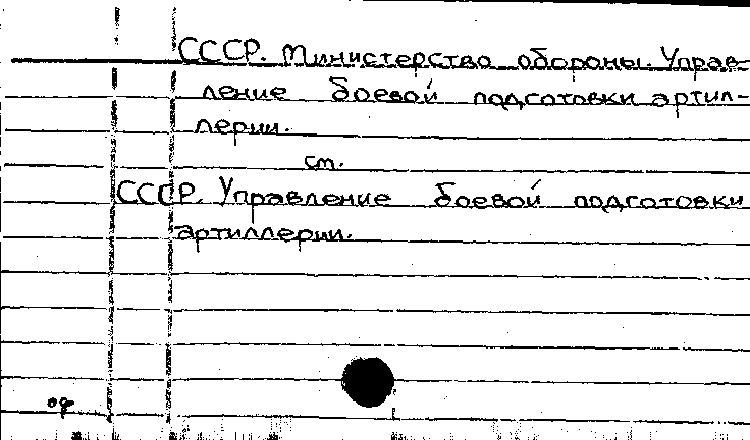 СССР. Министерство обороны. Управ-
ление боевой подготовки артил-
лерии.
см.
СССР. Управление боевой подготовки
артиллерии.
оф